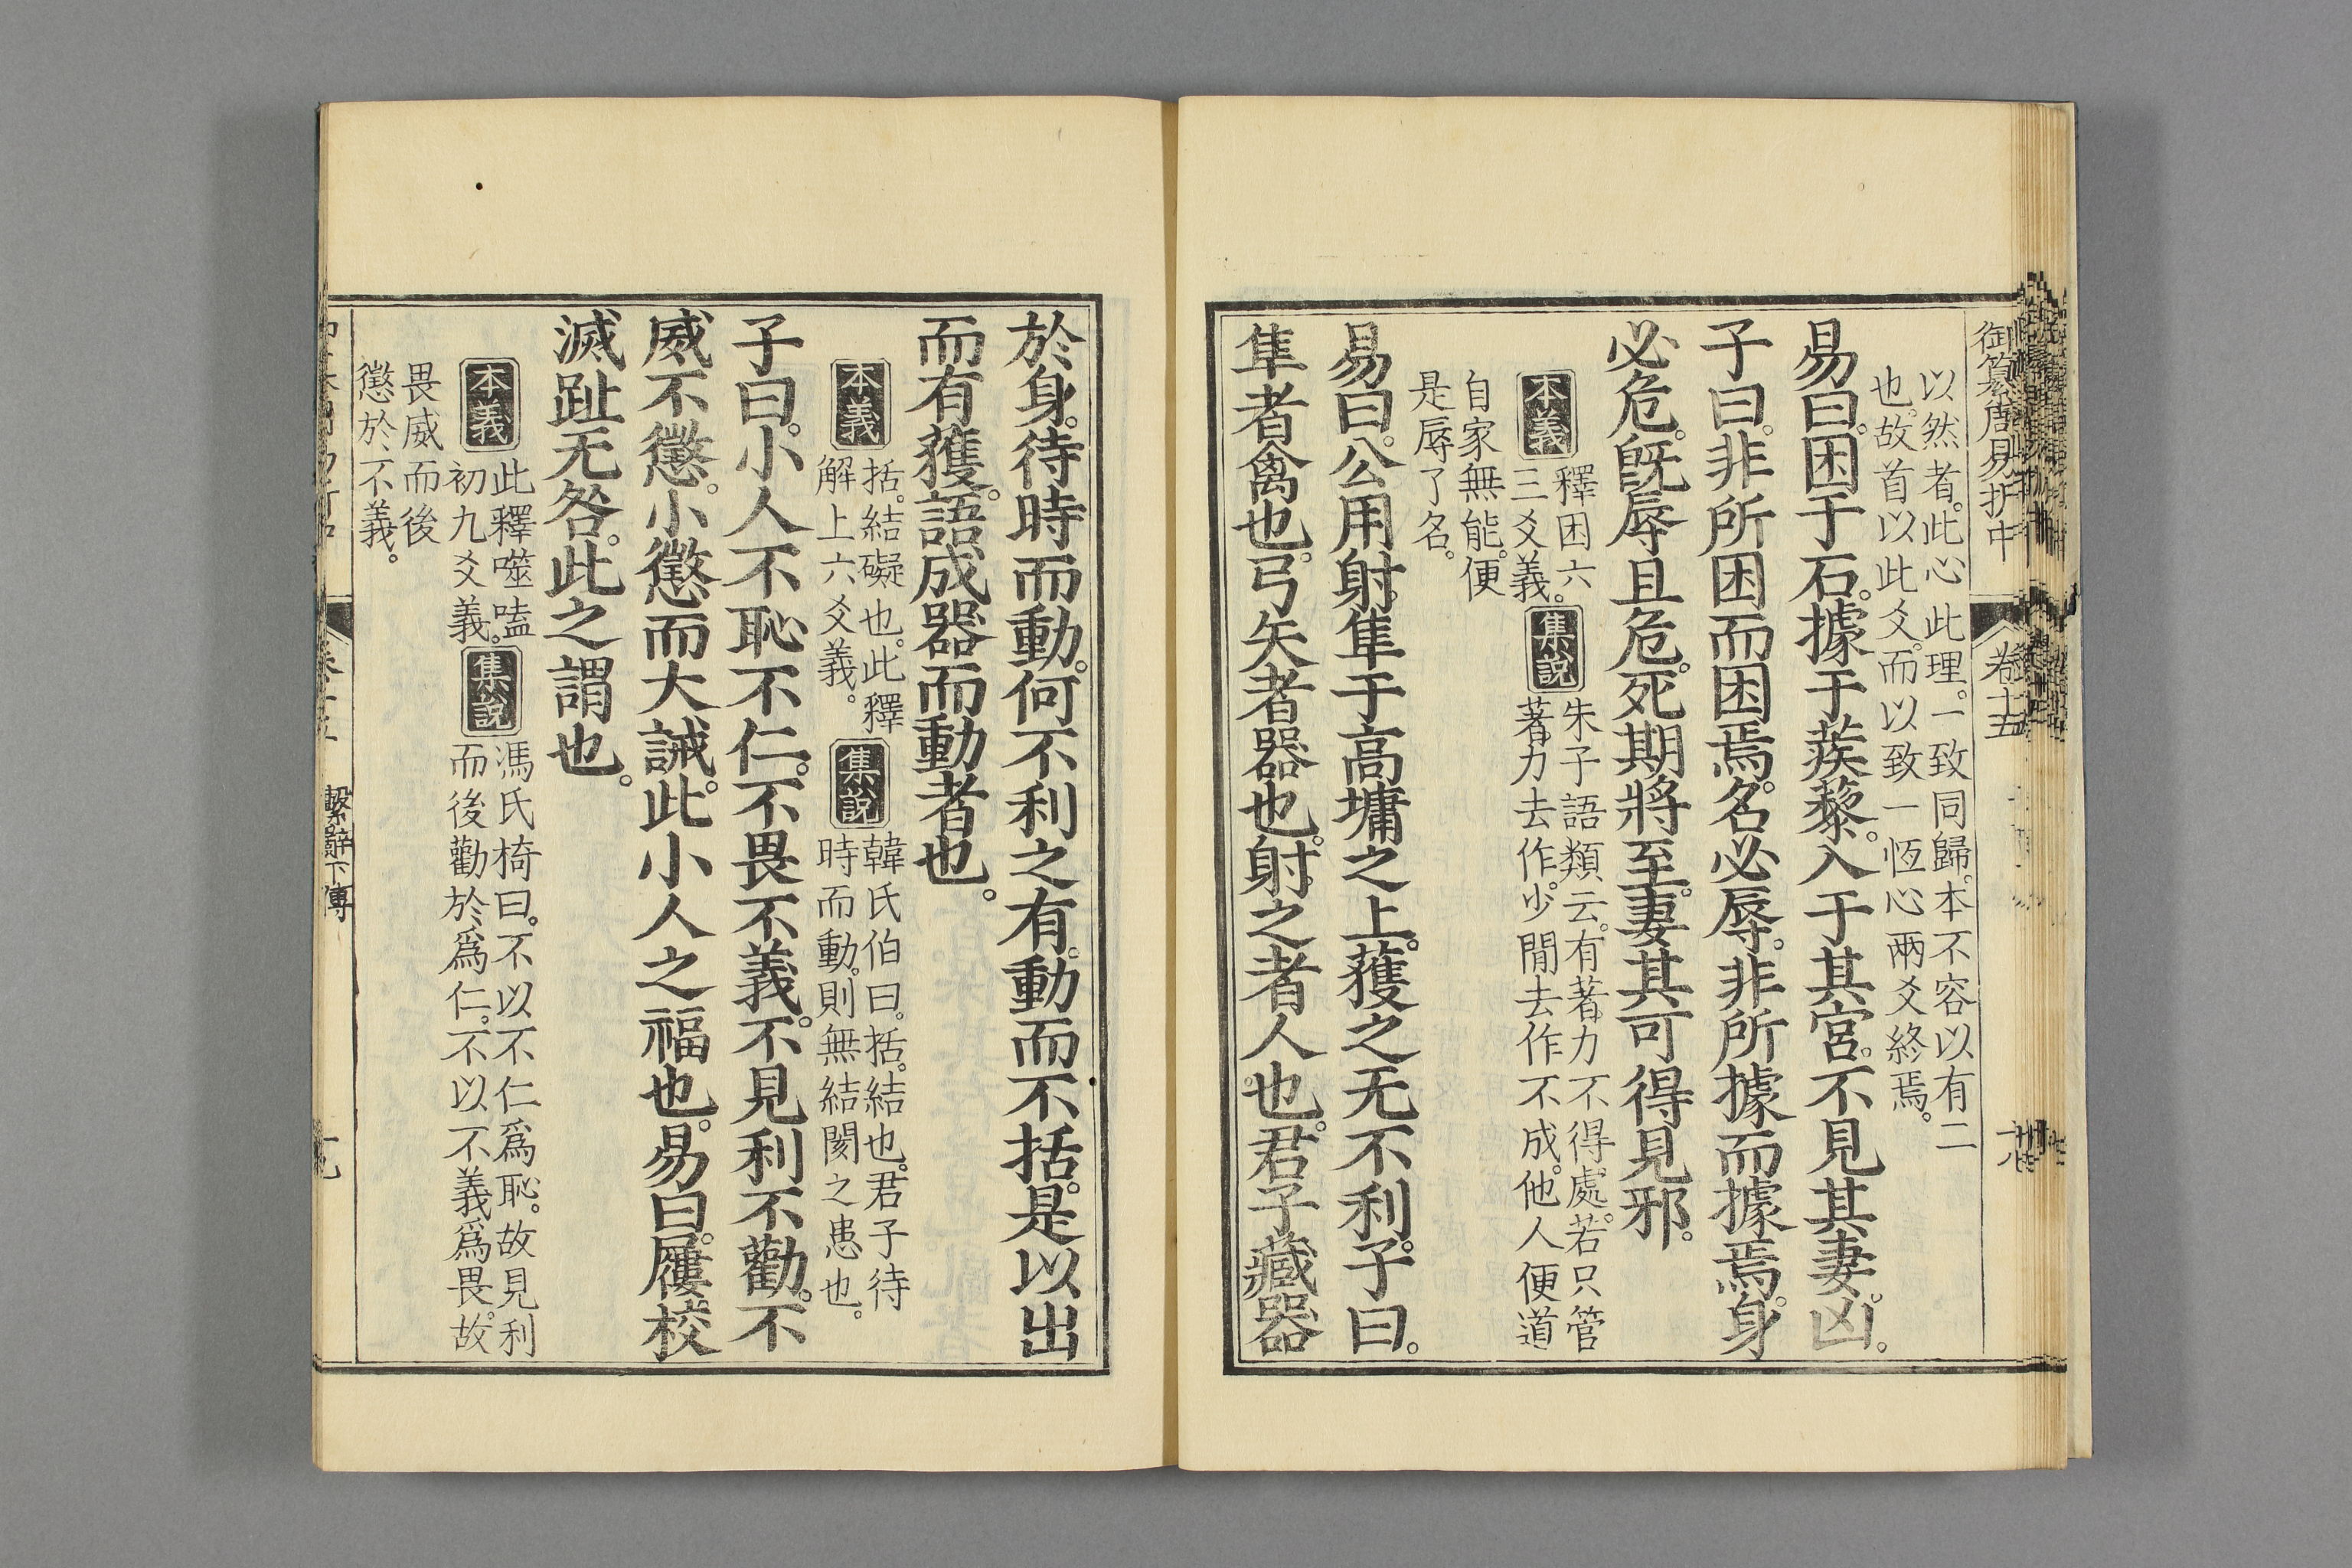 御纂周易折中
卷十五
以然者。此心此理。一致同歸。本不容以有二
也。故首以此爻。而以致一恆心兩爻終焉。
易曰。困于石。據于蒺藜。入于其宮。不見其妻凶。
子曰。非所困而困焉。名必辱。非所據而據焉。身
必危。旣辱且危。死期將至。妻其可得見邪。
本義
釋困六
三爻義。
集說
朱子語類云。有著力不得處。若只管
著力去作。少閒去作不成。他人便道
自家無能。便
是辱了名。
易曰。公用射隼于高墉之上。獲之无不利。子曰。
隼者禽也。弓矢者器也。射之者人也。君子藏器
於身。待時而動。何不利之有。動而不括。是以出
而有獲。語成器而動者也。
本義
括。結礙也。此釋
解上六爻義。
集說
韓氏伯曰。括。結也。君子待
時而動。則無結閡之患也。
子曰。小人不恥不仁。不畏不義。不見利不勸。不
威不懲。小懲而大誡。此小人之福也。易曰。屨校
滅趾无咎。此之謂也。
本義
此釋噬嗑
初九爻義。
集說
馮氏椅曰。不以不仁爲恥。故見利
而後勸於爲仁。不以不義爲畏。故
畏威而後
懲於不義。
繫辭下傳